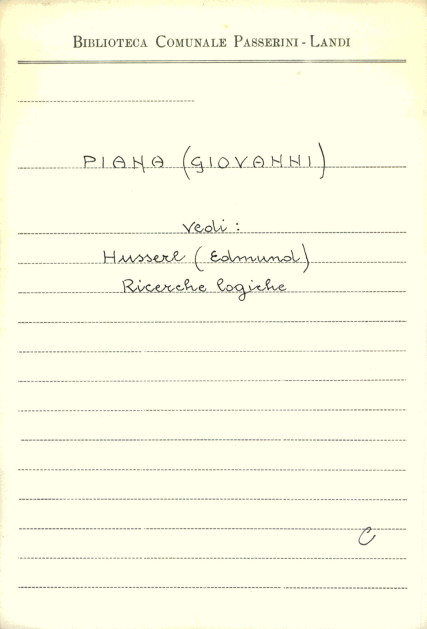 BIBLIOTECA COMUNALE PASSERINI - LANDI
PIANA (GIOVANNI)
vedi :
Husserl (Edmund)
Ricerche logiche
C